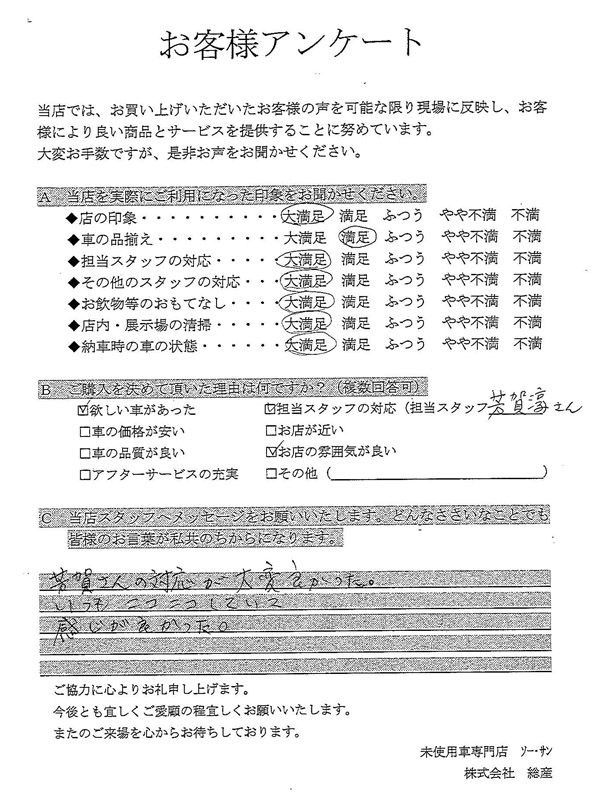 お客様アンケート
当店では、お買い上げいただいたお客様の声を可能な限り現場に反映し、お客
様により良い商品とサービスを提供することに努めています。
大変お手数ですが、是非お声をお聞かせください。
A 当店を実際にご利用になった印象をお聞かせください。
◆店の印象・・・・・・・・・・大満足 満足 ふつう やや不満 不満
◆車の品揃え・・・・・・・・・大満足 満足 ふつう やや不満 不満
◆担当スタッフの対応・・・・・大満足 満足 ふつう やや不満 不満
◆その他のスタッフの対応・・・大満足 満足 ふつう やや不満 不満
◆お飲物等のおもてなし・・・・大満足 満足 ふつう やや不満 不満
◆店内・展示場の清掃・・・・・大満足 満足 ふつう やや不満 不満
◆納車時の車の状態・・・・・・大満足 満足 ふつう やや不満 不満
B ご購入を決めて頂いた理由は何ですか?(複数回答可)
☑欲しい車があった ☑担当スタッフの対応(担当スタッフ 芳賀淳さん
□車の価格が安い □お店が近い
□車の品質が良い ☑お店の雰囲気が良い
□アフターサービスの充実 □その他( )
C 当店スタッフへメッセージをお願いいたします。どんなささいなことでも
皆様のお言葉が私共のちからになります。
芳賀さんの対応が大変良かった。
いつもニコニコしていて
感じが良かった。
ご協力に心よりお礼申し上げます。
今後とも宜しくご愛顧の程宜しくお願いいたします。
またのご来場を心からお待ちしております。
未使用車専門店 ソー・サン
株式会社 総産